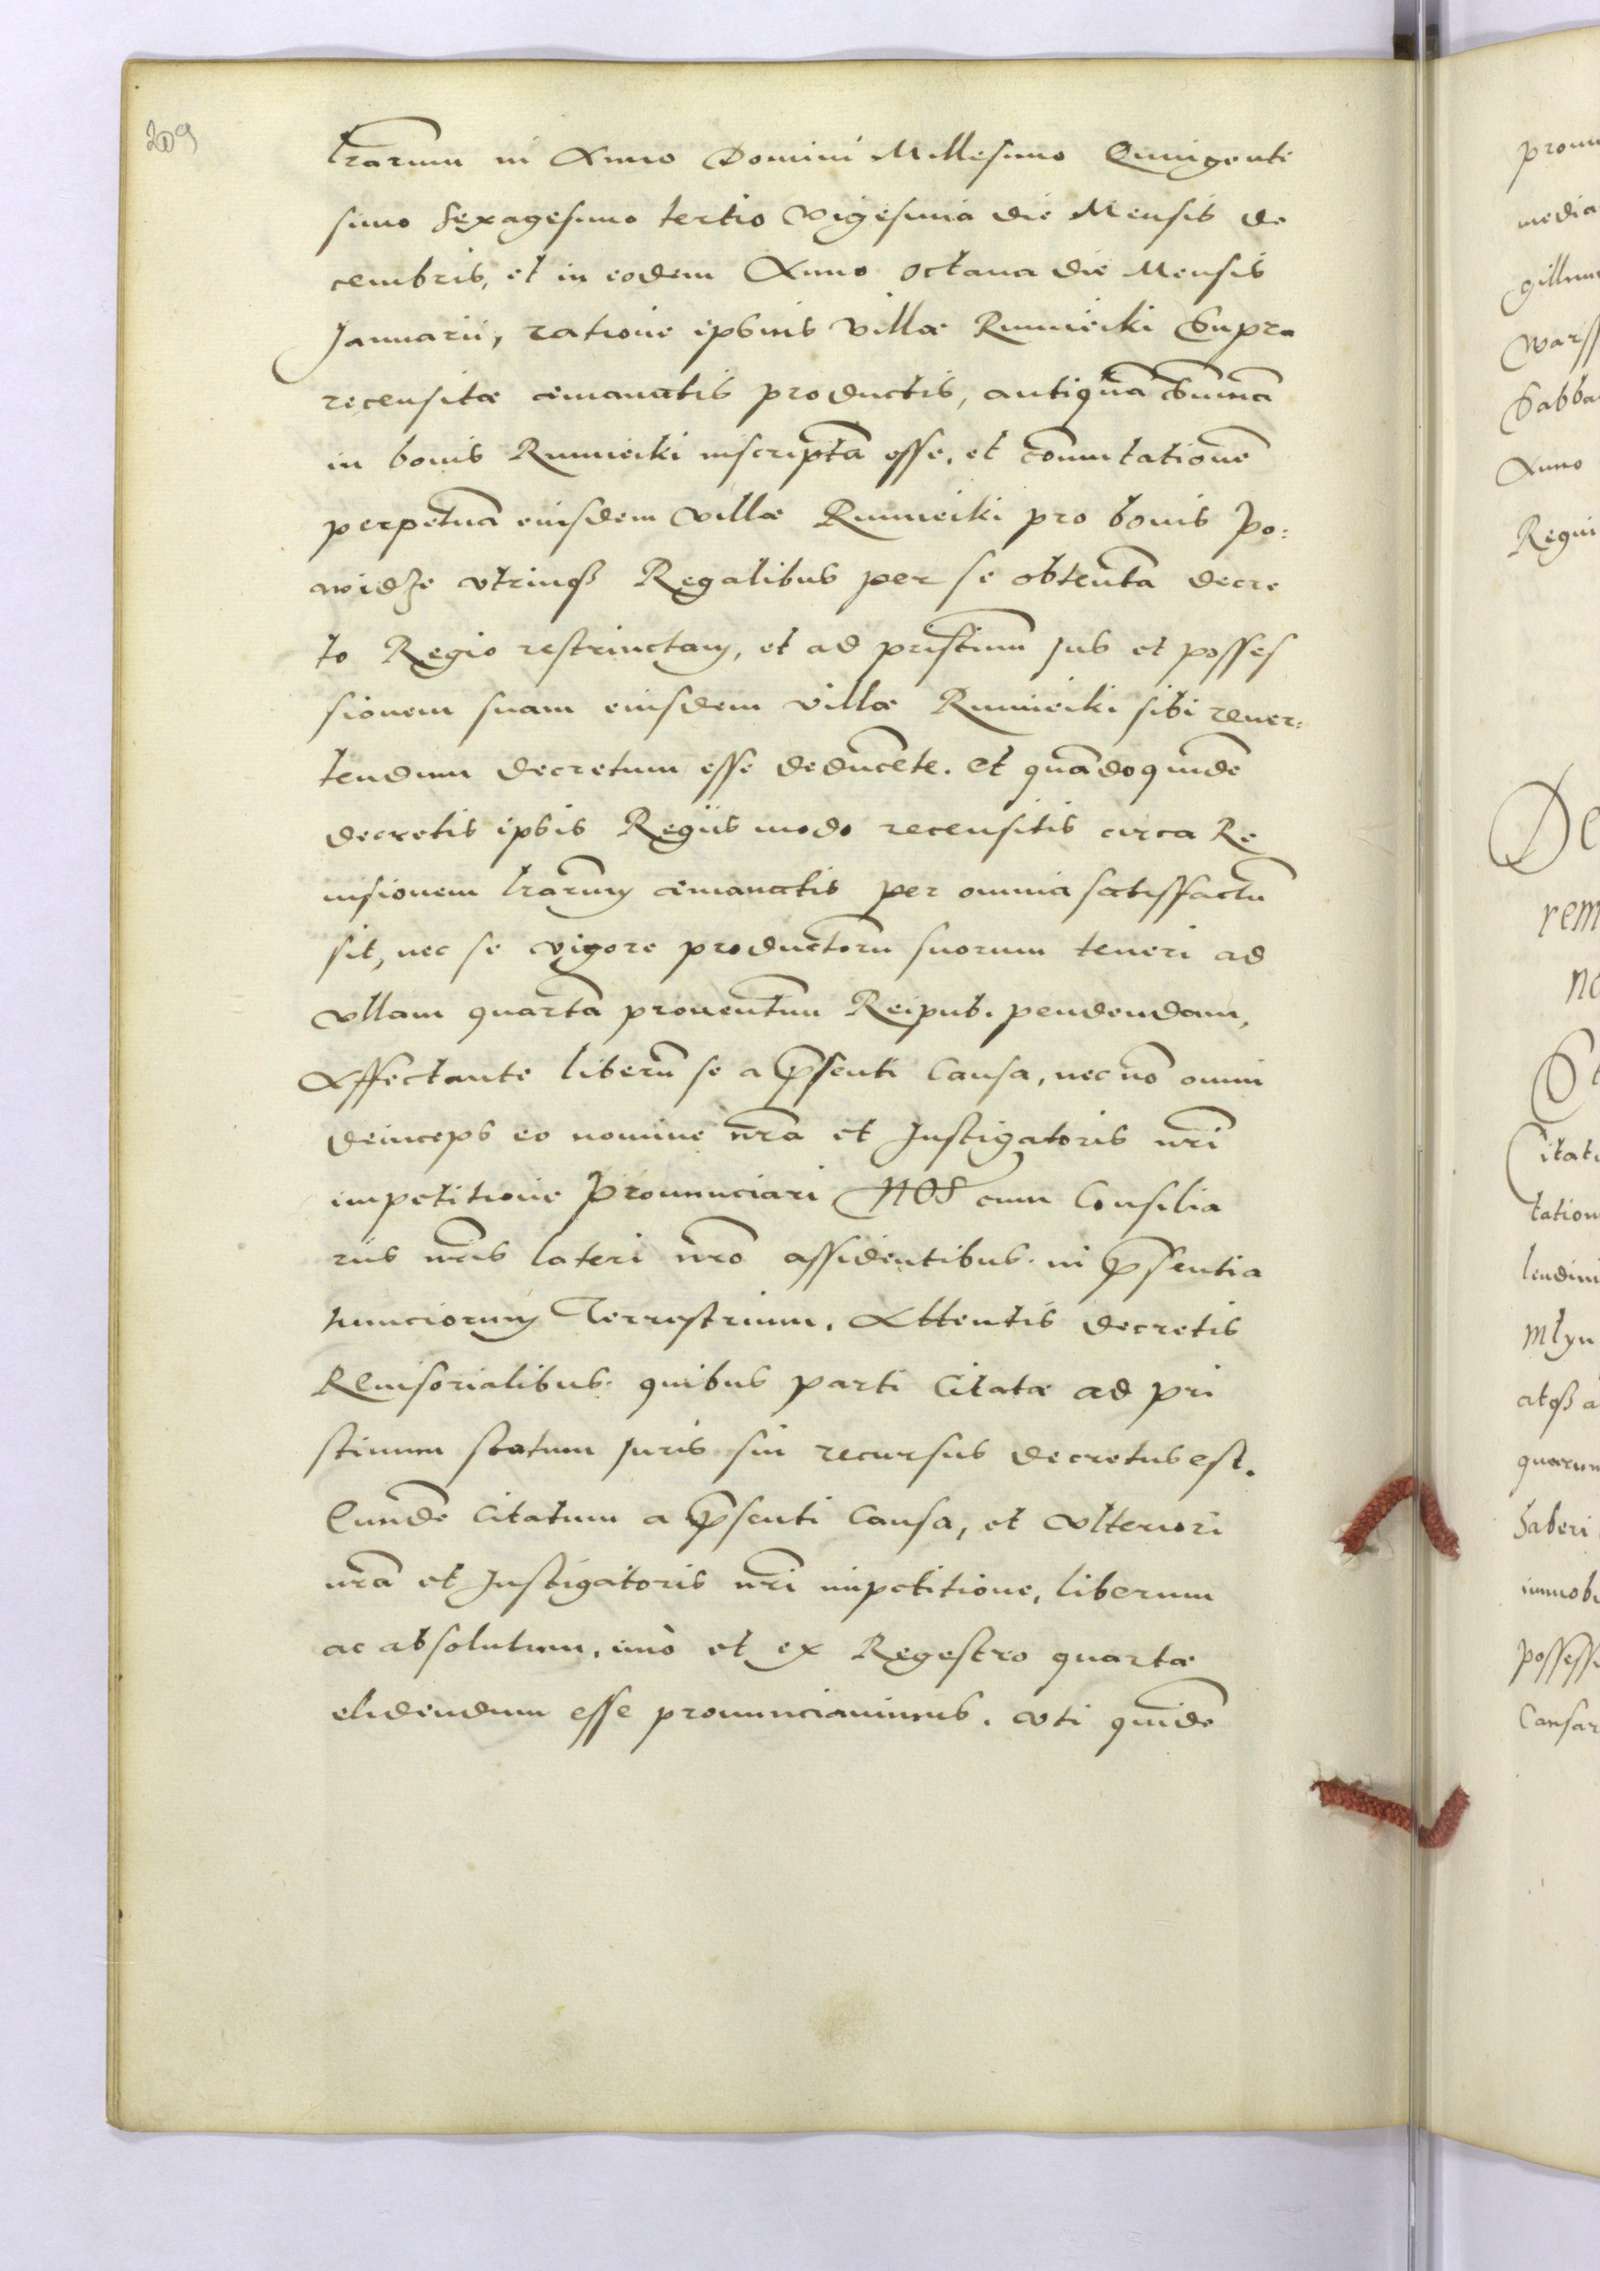 209
lrãrum in Anno Domini Millesimo Quingente
simo Sexagesimo tertio vigesima die Mensis de
cembris, et in eodem Anno octaua die Mensis
Januarii, ratione ipsius villæ Rumieiki Supra
recensitæ emanatis productis, antiquã Sum̃ã
in bonis Rumieiki inscriptã esse, et com̃utationẽ
perpetuã eiusdem villæ Rumieiki pro bonis Po:
widze vtrinqꝫ Regalibus per se obtentã decre
to Regio restrinctam, et ad pristinum jus et posses
sionem suam eiusdem villæ Rumieiki sibi reuer:
tendum decretum esse deducẽte. Et quãdoquidẽ
decretis ipsis Regiis modo recensitis circa Re
uisionem lrãrum emanatis per omnia satisfactũ
sit, nec se vigore productorũ suorum teneri ad
vllam quartã prouentuum Reipub. pendendam,
Affectante liberũ se a p̃senti Causa, nec nõ omni
deinceps eo nomine nrã et Instigatoris nrĩ
impetitione Pronunciari NOS cum Consilia
riis nrĩs lateri nrõ assidentibus. in p̃sentia
nunciorum Terrestrium. Attentis decretis
Reuisorialibus. quibus parti Citatæ ad pri
stinum statum juris sui recursus decretus est.
Eundẽ Citatum a p̃senti Causa, et vlteriori
nrã et Instigatoris nrĩ impetitione, liberum
ac absolutum, imò et ex Regestro quartæ
elidendum esse pronunciauimus. vti quidẽ
Regni
rem
Citat
tation
Mlyn
atqꝫ a
haberi
immob
possess